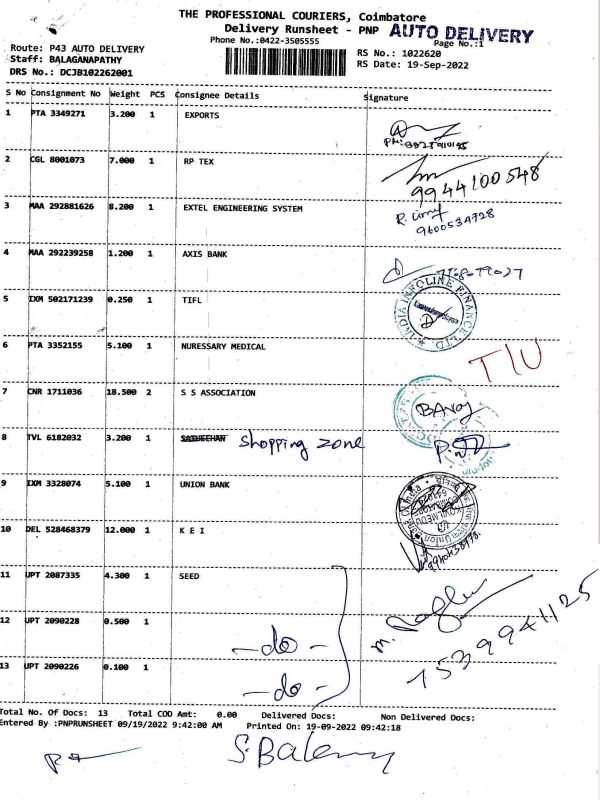 THE PROFESSIONAL COURIERS, Coimbatore
Delivery Runsheet - PNP AUTO DELIVERY
Phone No.:0422-3505555 Page No.:1
Route: P43 AUTO DELIVERY RS No.: 1022620
Staff: BALAGANAPATHY RS Date: 19-Sep-2022
DRS No.: DCJB102262001
S No Consignment No Weight PCS Consignee Details Signature
1 PTA 3349271 3.200 1 EXPORTS
2 CGL 8001073 7.000 1 RP TEX
9944100548
3 MAA 292881626 8.200 1 EXTEL ENGINEERING SYSTEM
9600534728
4 MAA 292239258 1.200 1 AXIS BANK
5 IXM 502171239 0.250 1 TIFL
INDIA INFOLINE FINANCE LTD
6 PTA 3352155 5.100 1 NURESSARY MEDICAL
T/U
7 CNR 1711036 18.500 2 S S ASSOCIATION
8 TVL 6182032 3.200 1 shopping zone
9 IXM 3328074 5.100 1 UNION BANK
10 DEL 528468379 12.000 1 K E I
11 UPT 2087335 4.300 1 SEED
12 UPT 2090228 0.500 1
- do -
13 UPT 2090226 0.100 1
- do -
Total No. Of Docs: 13 Total COD Amt: 0.00 Delivered Docs: Non Delivered Docs:
Entered By :PNPRUNSHEET 09/19/2022 9:42:00 AM Printed On: 19-09-2022 09:42:18